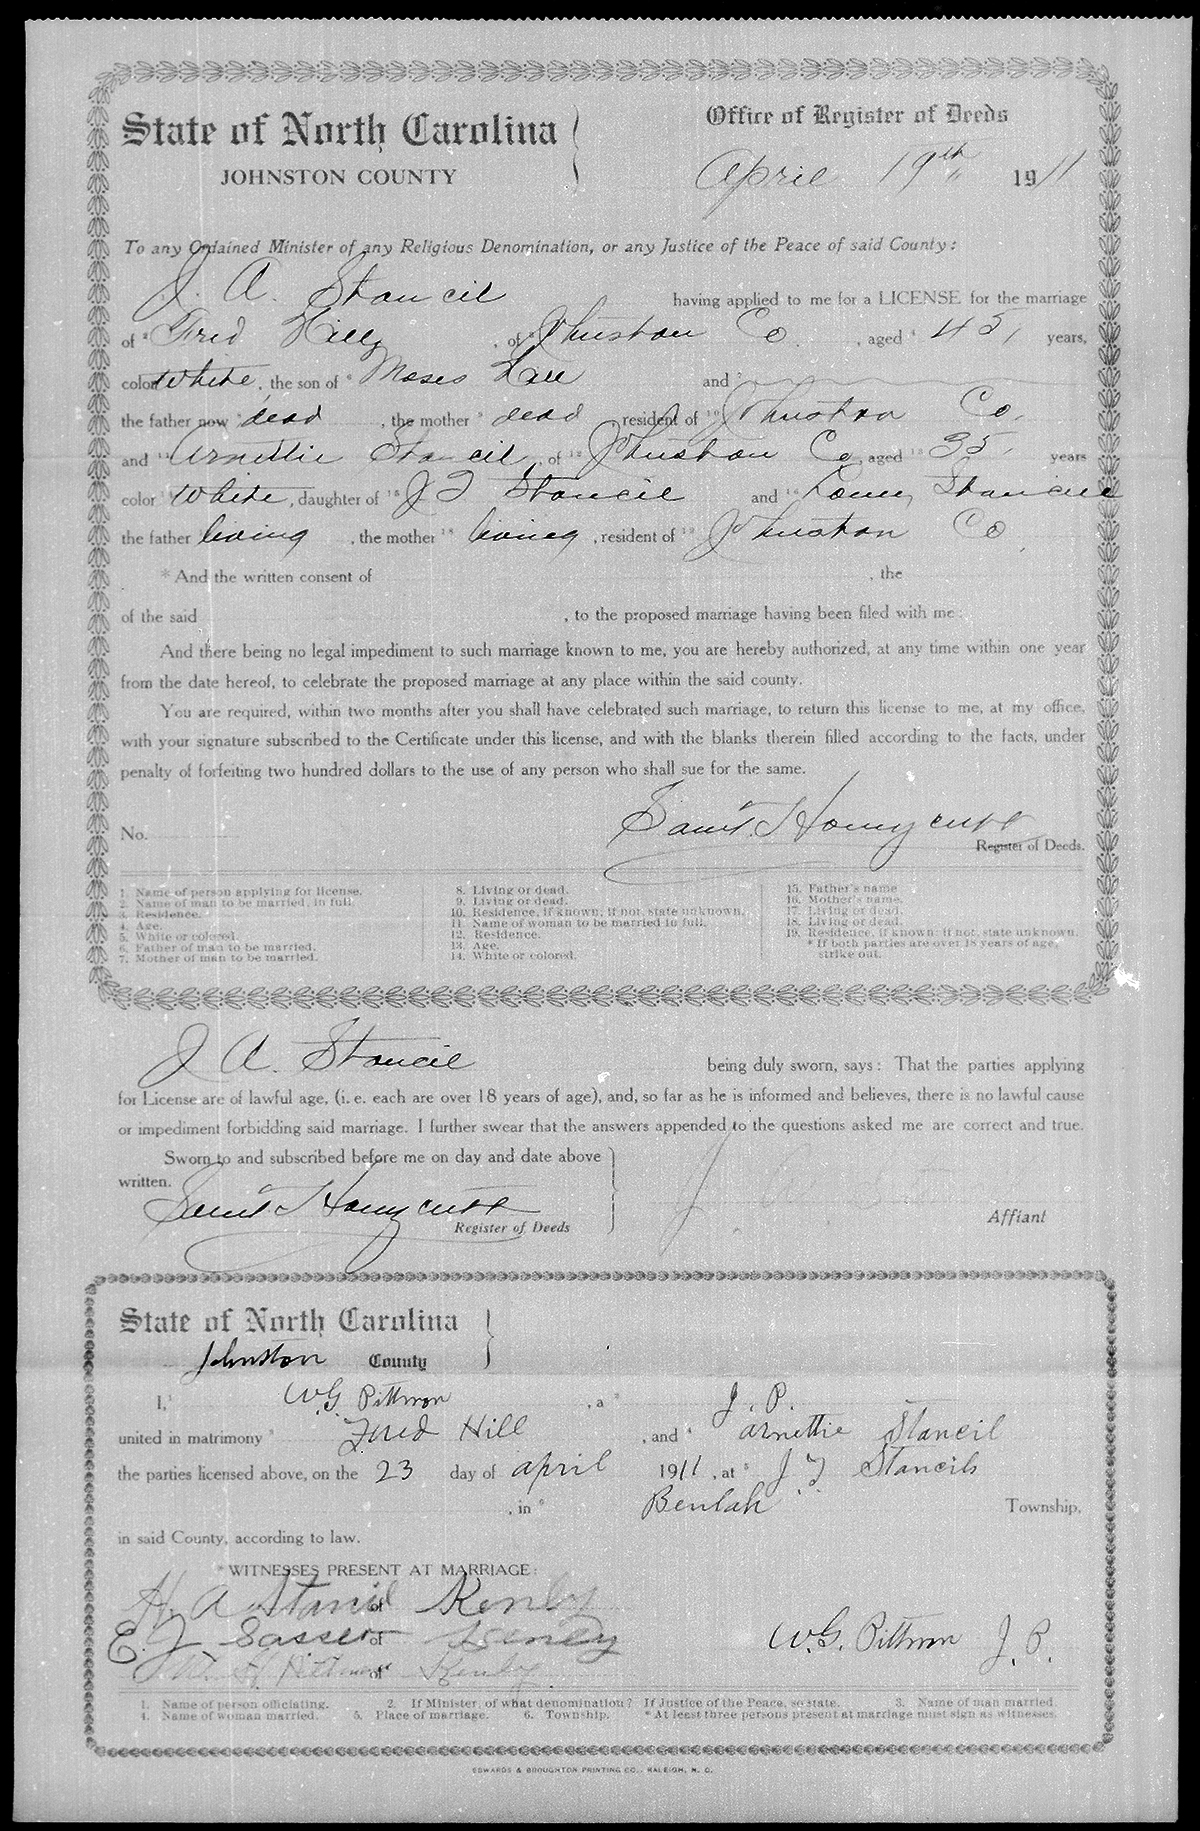 State of North Carolina
JOHNSTON COUNTY
Office of Register of Deeds
April 19th 1911
To any Ordained Minister of any Religious Denomination, or any Justice of the Peace of said County:
J. A. Stancil having applied to me for a LICENSE for the marriage
of Fred Hill, of Johnston Co., aged 45, years,
color White, the son of Moses and
the father now dead, the mother dead resident of Johnston Co.
and Arnettie Stancil, of Johnston Co, aged 35, years
color White, daughter of J T Stancil and Stancil
the father living, the mother living, resident of Johnston Co,
* And the written consent of , the
of the said , to the proposed marriage having been filed with me:
And there being no legal impediment to such marriage known to me, you are hereby authorized, at any time within one year
from the date hereof, to celebrate the proposed marriage at any place within the said county.
You are required, within two months after you shall have celebrated such marriage, to return this license to me, at my office,
with your signature subscribed to the Certificate under this license, and with the blanks therein filled according to the facts, under
penalty of forfeiting two hundred dollars to the use of any person who shall sue for the same.
Sam'l T Honeycutt
No. Register of Deeds.
1. Name of person applying for license.
2. Name of man to be married, in full.
3. Residence.
4. Age.
5. White or colored.
6. Father of man to be married.
7. Mother of man to be married.
8. Living or dead.
9. Living or dead.
10. Residence, if known; if not, state unknown.
11. Name of woman to be married in full.
12. Residence.
13. Age.
14. White or colored.
15. Father's name
16. Mother's name.
17. Living or dead.
18. Living or dead.
19. Residence, if known; if not, state unknown.
* If both parties are over 18 years of age,
strike out.
J A. Stancil being duly sworn, says: That the parties applying
for License are of lawful age, (i. e. each are over 18 years of age), and, so far as he is informed and believes, there is no lawful cause
or impediment forbidding said marriage. I further swear that the answers appended to the questions asked me are correct and true.
Sworn to and subscribed before me on day and date above
written.
Sam'l T Honeycutt
Register of Deeds
Affiant
State of North Carolina
Johnston County
I, W.G. Pittman, a J. P.
united in matrimony Fred Hill, and Arnettie Stancil
the parties licensed above, on the 23 day of april 1911, at J T Stancils
, in Beulah Township,
in said County, according to law.
* WITNESSES PRESENT AT MARRIAGE:
H. A Stancil of Kenly
E. J Sasser of
of Kenly
W.G. Pittman J. P.
1. Name of person officiating. 2. If Minister, of what denomination? If Justice of the Peace, so state. 3. Name of man married.
4. Name of woman married. 5. Place of marriage. 6. Township. * At least three persons present at marriage must sign as witnesses.
EDWARDS & BROUGHTON PRINTING CO., RALEIGH, N. C.